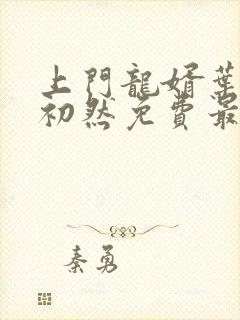 上門龍婿葉
初然免費最
秦勇